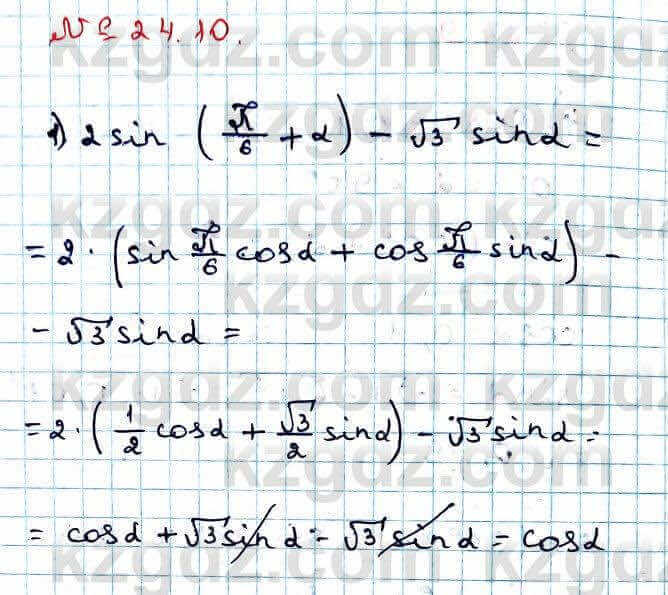 № 24.10.
1) 2 sin (π/6 + α) - √3 sin α =
= 2 · (sin π/6 cos α + cos π/6 sin α) -
- √3 sin α =
= 2 · (1/2 cos α + √3/2 sin α) - √3 sin α =
= cos α + √3 sin α - √3 sin α = cos α
kzgdz.com